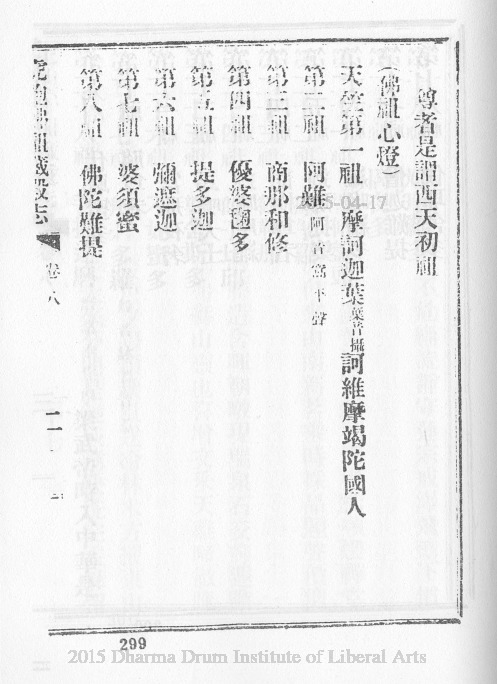 尊者是謂西天初祖
(佛祖心燈)
天竺第一祖 摩訶迦葉葉音攝訶維摩竭陀國人
第二祖 阿難阿音窩平聲
第三祖 商那和修
第四祖 優婆毱多
第五祖 提多迦
第六祖 彌遮迦
第七祖 婆須蜜
第八祖 佛陀難提
虎跑佛祖藏殿志 卷八
299
2015 Dharma Drum Institute of Liberal Arts